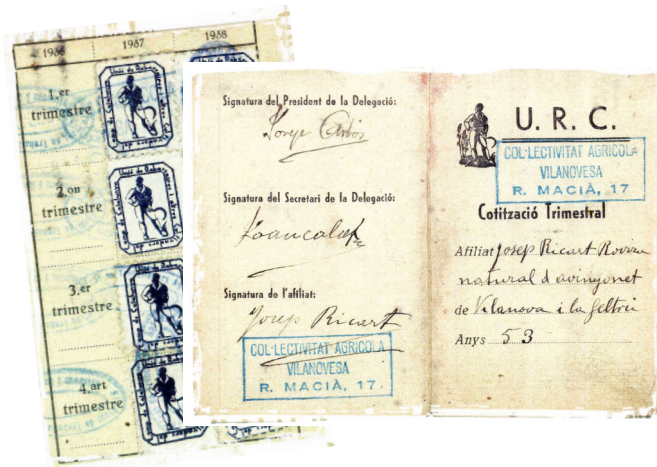 1936
1937
1938
1.er
trimestre
2.on
trimestre
3.er
trimestre
4.art
trimestre
Signatura del President de la Delegació:
Josep
Signatura del Secretari de la Delegació:
Signatura de l'afiliat:
Josep Ricart
COL·LECTIVITAT AGRICOLA
VILANOVESA
R. MACIÀ, 17.
U. R. C.
COL·LECTIVITAT AGRICOLA
VILANOVESA
R. MACIÀ, 17
Cotització Trimestral
Afiliat Josep Ricart Rovira
natural d avinyonet
de Vilanova i la Geltrú
Anys 53